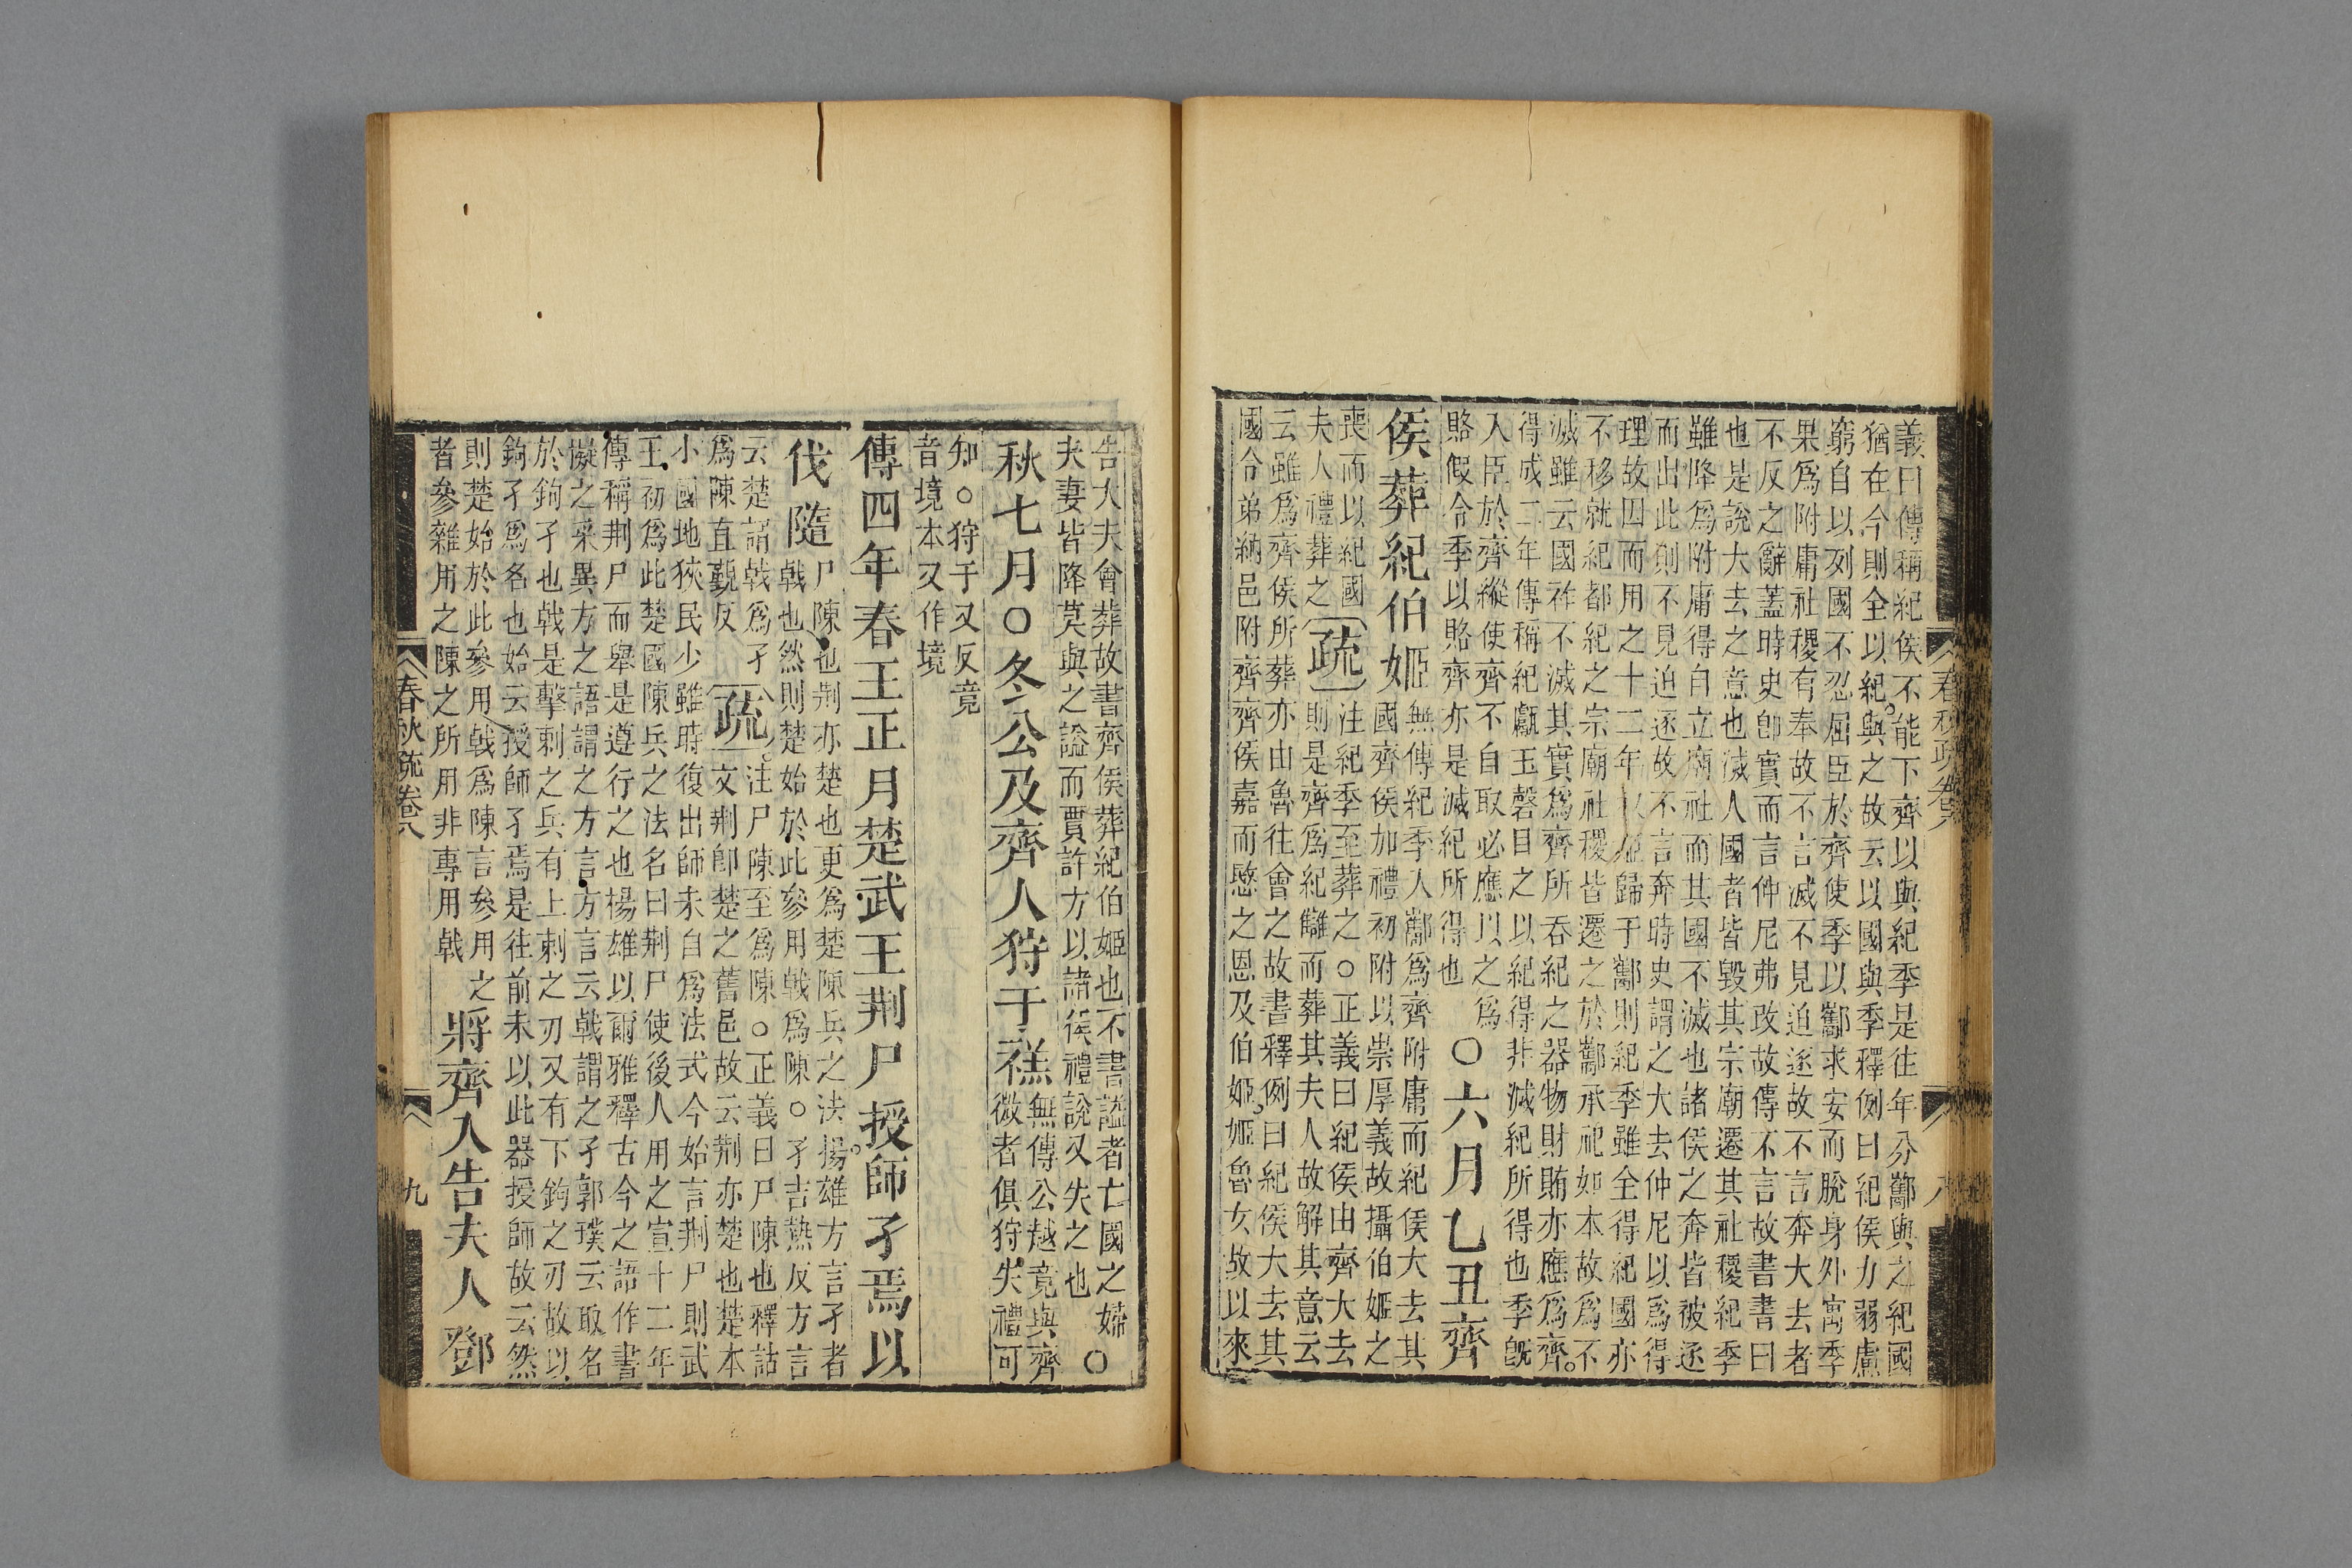 義曰傳稱紀侯不能下齊以與紀季是往年分酅與之紀國
猶在今則全以紀與之故云以國與季釋例曰紀侯力弱慮
窮自以列國不忍屈臣於齊使季以酅求安而脫身外寓季
果爲附庸社稷有奉故不言滅不見迫逐故不言奔大去者
不反之辭蓋時史卽實而言仲尼弗改故傳不言故書書曰
也是說大去之意也滅人國者皆毀其宗廟遷其社稷紀季
雖降爲附庸得自立廟社而其國不滅也諸侯之奔皆被逐
而出此則不見迫逐故不言奔時史謂之大去仲尼以爲得
理故因而用之十二年叔姬歸于酅則紀季雖全得紀國亦
不移就紀都紀之宗廟社稷皆遷之於酅承祀如本故爲不
滅雖云國祚不滅其實爲齊所吞紀之器物財賄亦應爲齊
得成二年傳稱紀甗玉磬目之以紀得非滅紀所得也季旣
入臣於齊縱使齊不自取必應以之爲
賂假令季以賂齊亦是滅紀所得也
○六月乙丑齊
侯葬紀伯姬
無傳紀季入酅爲齊附庸而紀侯大去其
國齊侯加禮初附以崇厚義故攝伯姬之
喪而以紀國
夫人禮葬之
疏
注紀季至葬之○正義曰紀侯由齊大去
則是齊爲紀讎而葬其夫人故解其意云
云雖爲齊侯所葬亦由魯往會之故書釋例曰紀侯大去其
國令弟納邑附齊齊侯嘉而愍之恩及伯姬姬魯女故以來
告大夫會葬故書齊侯葬紀伯姬也不書謚者亡國之婦
夫妻皆降莫與之謚而賈許方以諸侯禮說又失之也
○
秋七月○冬公及齊人狩于禚
無傳公越竟與齊
微者俱狩失禮可
知○狩于又反竟
音境本又作境
傳四年春王正月楚武王荆尸授師孑焉以
伐隨
尸陳也荆亦楚也更爲楚陳兵之法揚雄方言孑者
戟也然則楚始於此參用戟爲陳○孑吉熱反方言
云楚謂戟爲孑
爲陳直覲反
疏
注尸陳至爲陳○正義曰尸陳也釋詁
文荆卽楚之舊邑故云荆亦楚也楚本
小國地狹民少雖時復出師未自爲法式今始言荆尸則武
王初爲此楚國陳兵之法名曰荆尸使後人用之宣十二年
傳稱荆尸而舉是遵行之也楊雄以爾雅釋古今之語作書
擬之采異方之語謂之方言方言云戟謂之孑郭璞云取名
於鉤孑也戟是擊刺之兵有上刺之刃又有下鉤之刃故以
鉤孑爲名也始云授師孑焉是往前未以此器授師故云然
則楚始於此參用戟爲陳言參用之
者參雜用之陳之所用非專用戟
將齊入告夫人鄧
春秋疏卷八
九